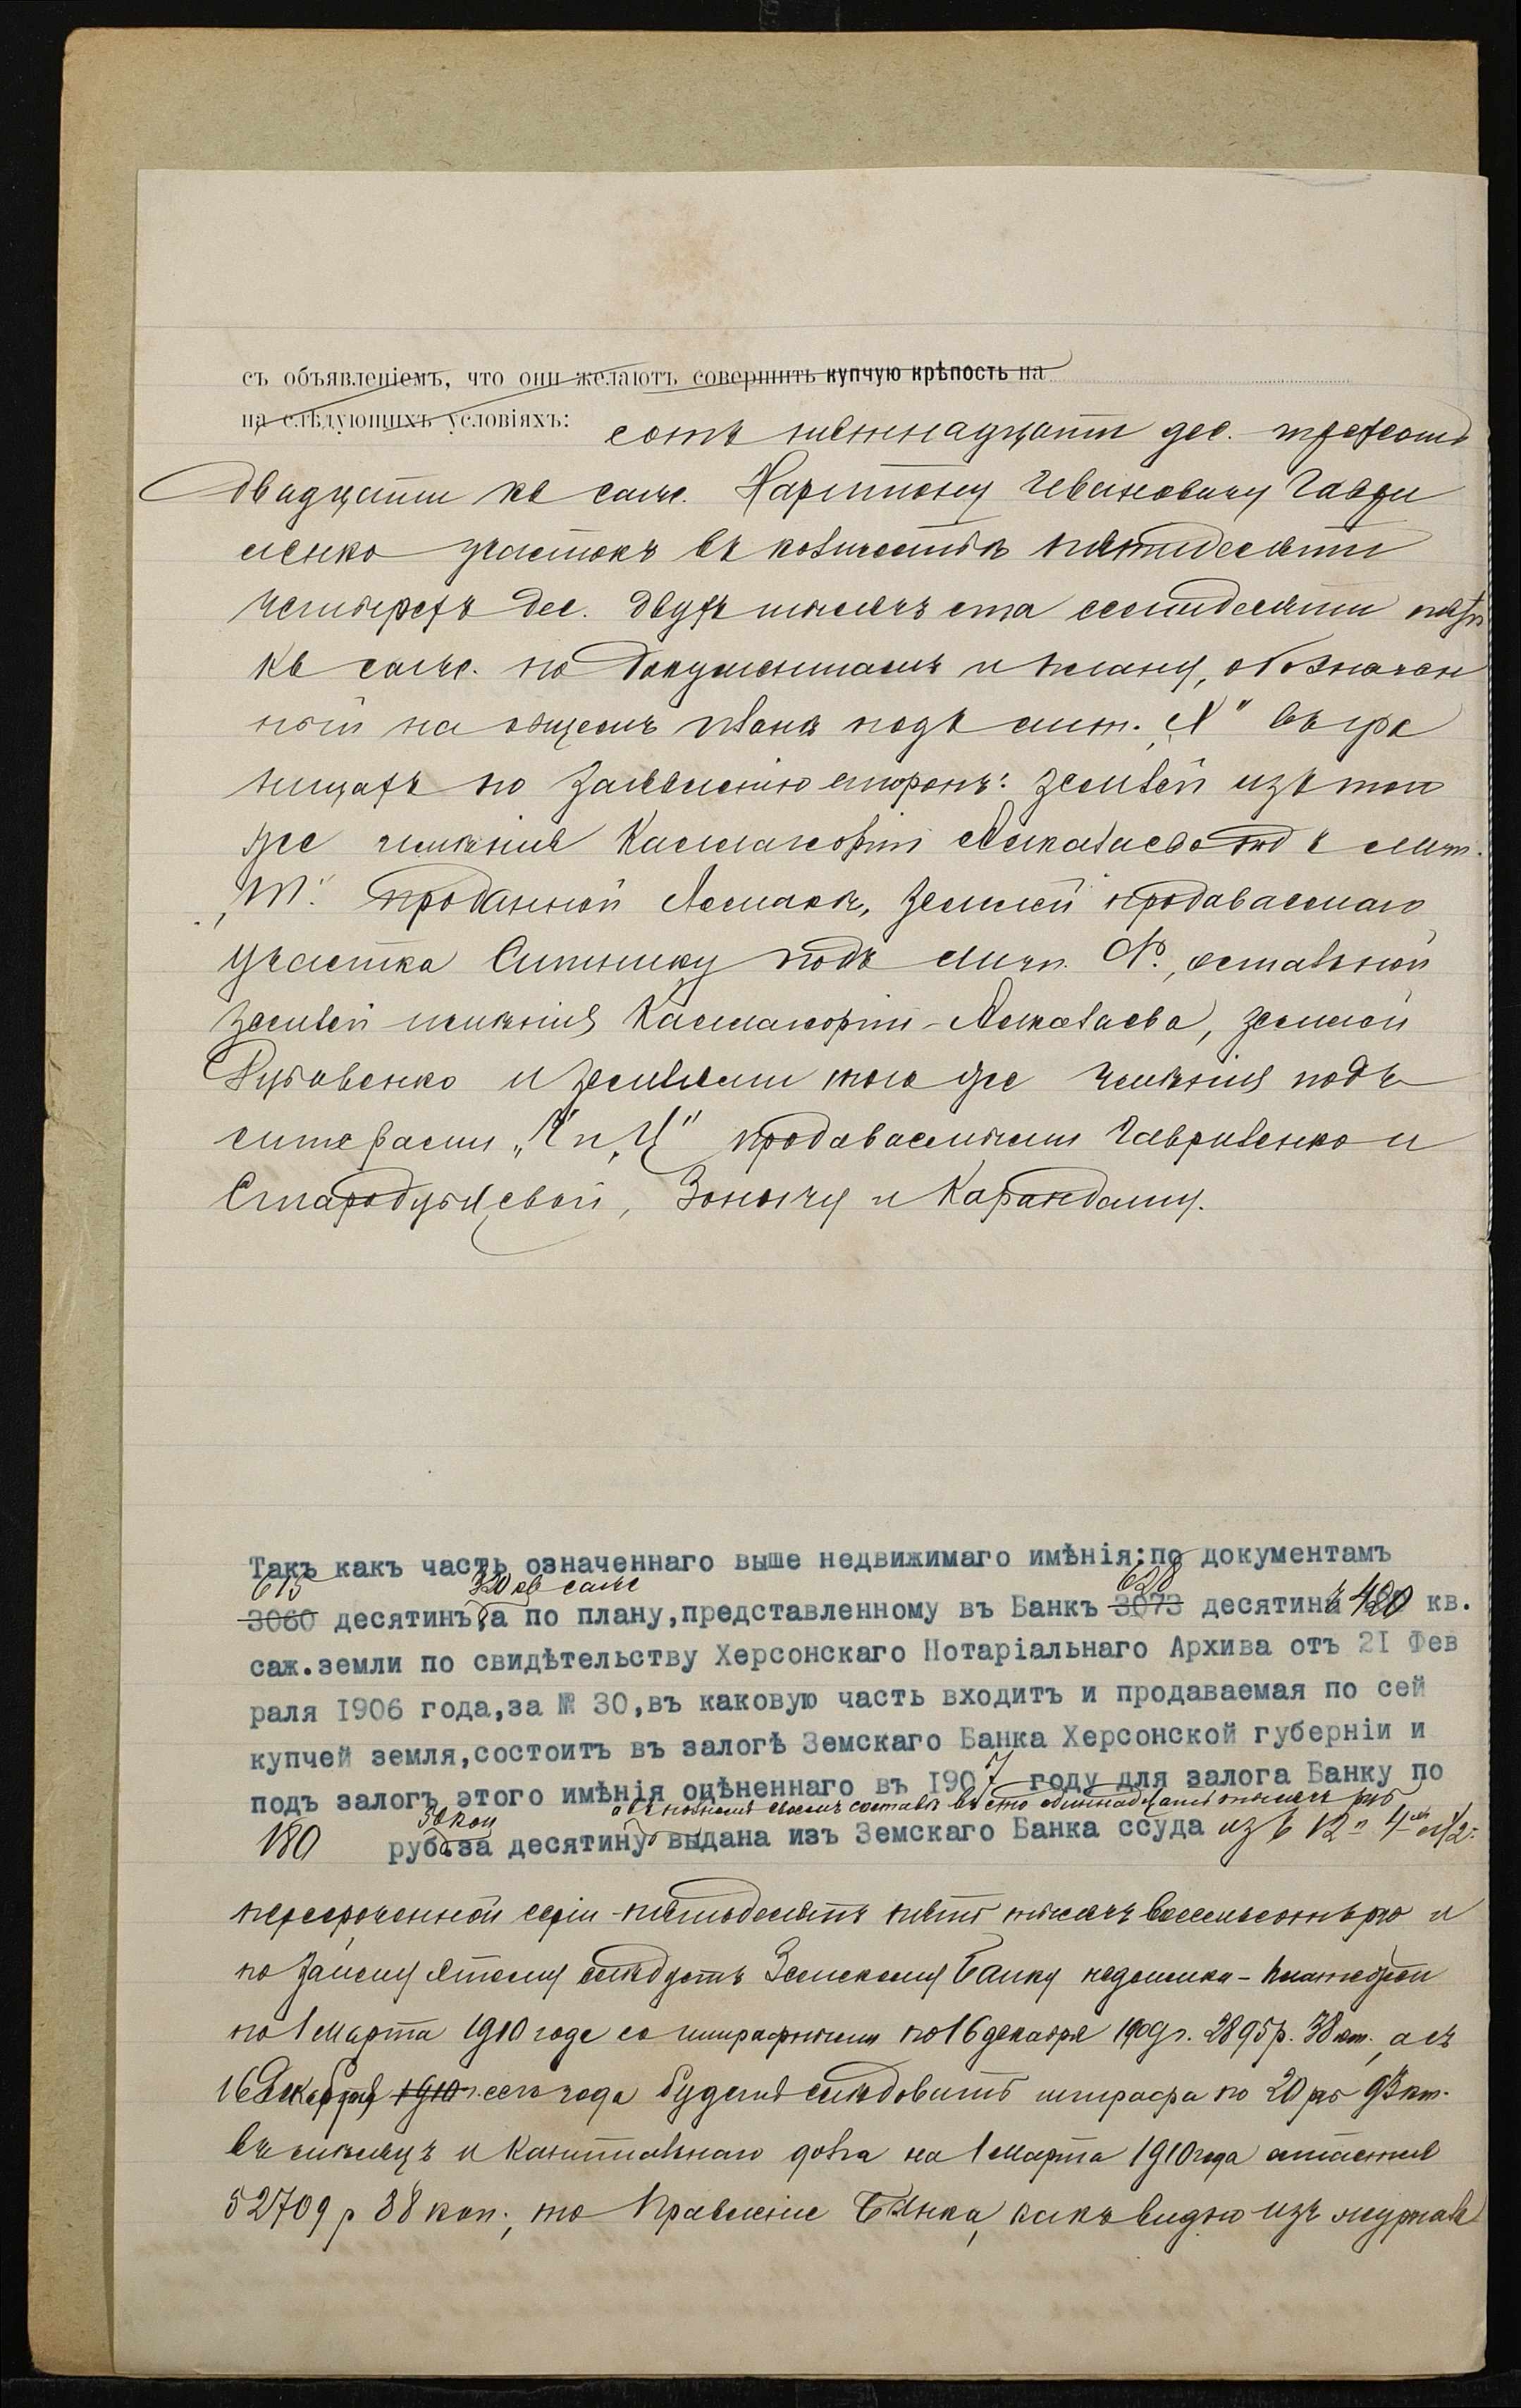 съ объявленіемъ, что они желаютъ совершить купчую крѣпость на
на слѣдующихъ условіяхъ:
сотъ пятнадцати дес. трехсотъ
двадцати кв саж. Харитону Ивановичу Гаври
ленко участокъ въ количествѣ пятидесяти
четырехъ дес. двухъ тысячъ ста семидесяти пяти
кв саж. по документамъ и плану, обозначен
ный на общемъ планѣ подъ лит. въ гра
ницахъ по заявленію сторонъ: землей изъ того
же имѣнія подъ лит.
„М" проданной землей продаваемаго
участка Ситнику подъ лит. остальной
землей имѣнія земелей
и землями того же имѣнія подъ
литерами продаваемыми Гавриленко и
Стародубцевой, и Карандашу.
Такъ какъ часть означеннаго выше недвижимаго имѣнія:по документамъ
615 320 кв саж 628
3060 десятинъ, а по плану,представленному въ Банкъ 3073 десятинъ 420 кв.
саж.земли по свидѣтельству Херсонскаго Нотаріальнаго Архива отъ 21 Фев
раля 1906 года,за № 30,въ каковую часть входитъ и продаваемая по сей
купчей земля,состоитъ въ залогѣ Земскаго Банка Херсонской губерніи и
подъ залогъ этого имѣнія оцѣненнаго въ 1907 году для залога Банку по
а въ полномъ своемъ составѣ въ сто одиннадцать тысячъ руб
180 руб. за десятину выдана изъ Земскаго Банка ссуда изъ
пересроченной серіи - пятьдесятъ пять тысячъ восемьсотъ руб и
по займу этому слѣдуетъ Земскому Банку недоимки - платежей
по 1 Марта 1910 года со штрафными по 16 декабря 1909 г. 2895 р. 38 коп., а съ
16 Декабря 1910 сего года будетъ слѣдовать штрафа по 20 руб 93 коп.
въ мѣсяцъ и капитальнаго долга на 1 Марта 1910 года останется
52709 р 88 коп., то Правленіе Банка, какъ видно изъ журнала